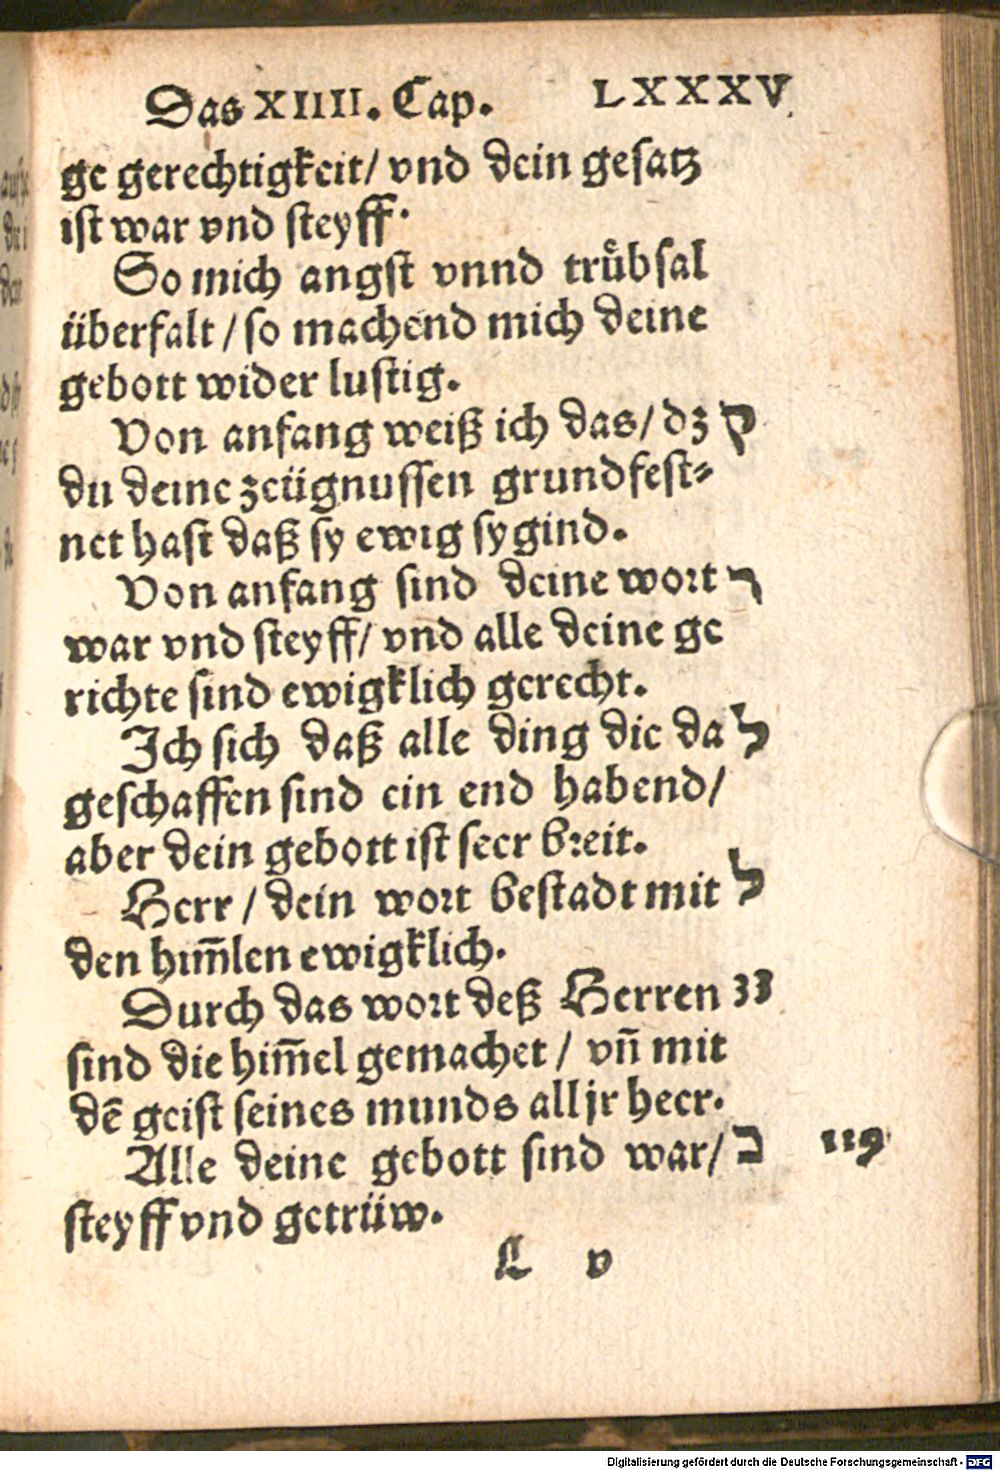 Das XIIII. Cap. LXXXV
ge gerechtigkeit/ vnd dein gesatz
ist war vnd steyff.
So mich angst vnnd truͤbsal
überfalt / so machend mich deine
gebott wider lustig.
Von anfang weiß ich das/ dz ק
du deine zeügnussen grundfest⸗
net hast daß sy ewig sygind.
Von anfang sind deine wort ר
war vnd steyff/ vnd alle deine ge
richte sind ewigklich gerecht.
Ich sich daß alle ding die da ל
geschaffen sind ein end habend/
aber dein gebott ist seer breit.
Herr / dein wort bestadt mit ל
den him̄len ewigklich.
Durch das wort deß Herren 33
sind die him̄el gemachet / vn̄ mit
dē geist seines munds all jr heer.
Alle deine gebott sind war/ כ 119
steyff vnd getrüw.
L v
Digitalisierung gefördert durch die Deutsche Forschungsgemeinschaft - DFG